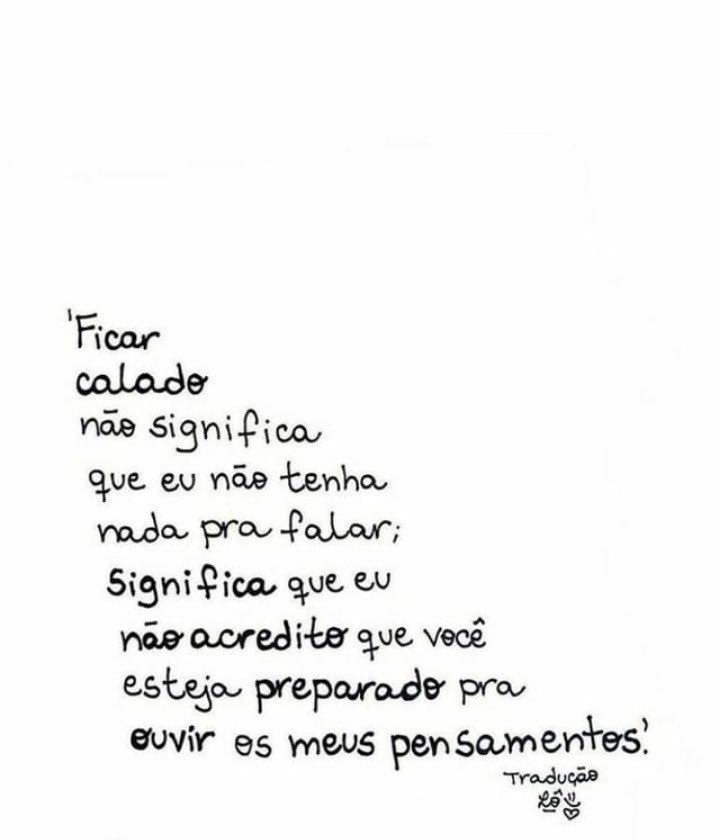 'Ficar
calado
não significa
que eu não tenha
nada pra falar;
significa que eu
não acredito que você
esteja preparado pra
ouvir os meus pensamentos.'
Tradução
Rô